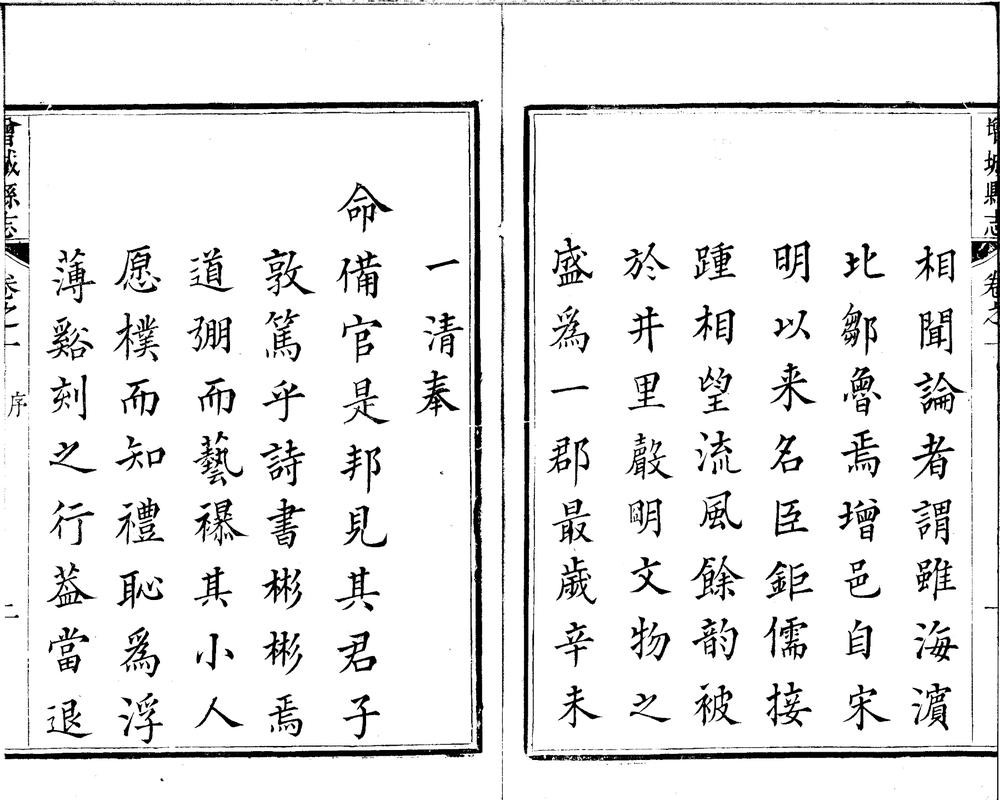 增城縣志
卷之一
一
相聞論者謂雖海濵
北鄒魯焉增邑自宋
明以来名臣鉅儒接
踵相望流風餘韵被
於井里聲明文物之
盛爲一郡最歲辛未
一清奉
命備官是邦見其君子
敦篤乎詩書彬彬焉
道弸而藝襮其小人
愿樸而知禮恥爲浮
薄谿刻之行葢當退
增城縣志
卷之一
序
二